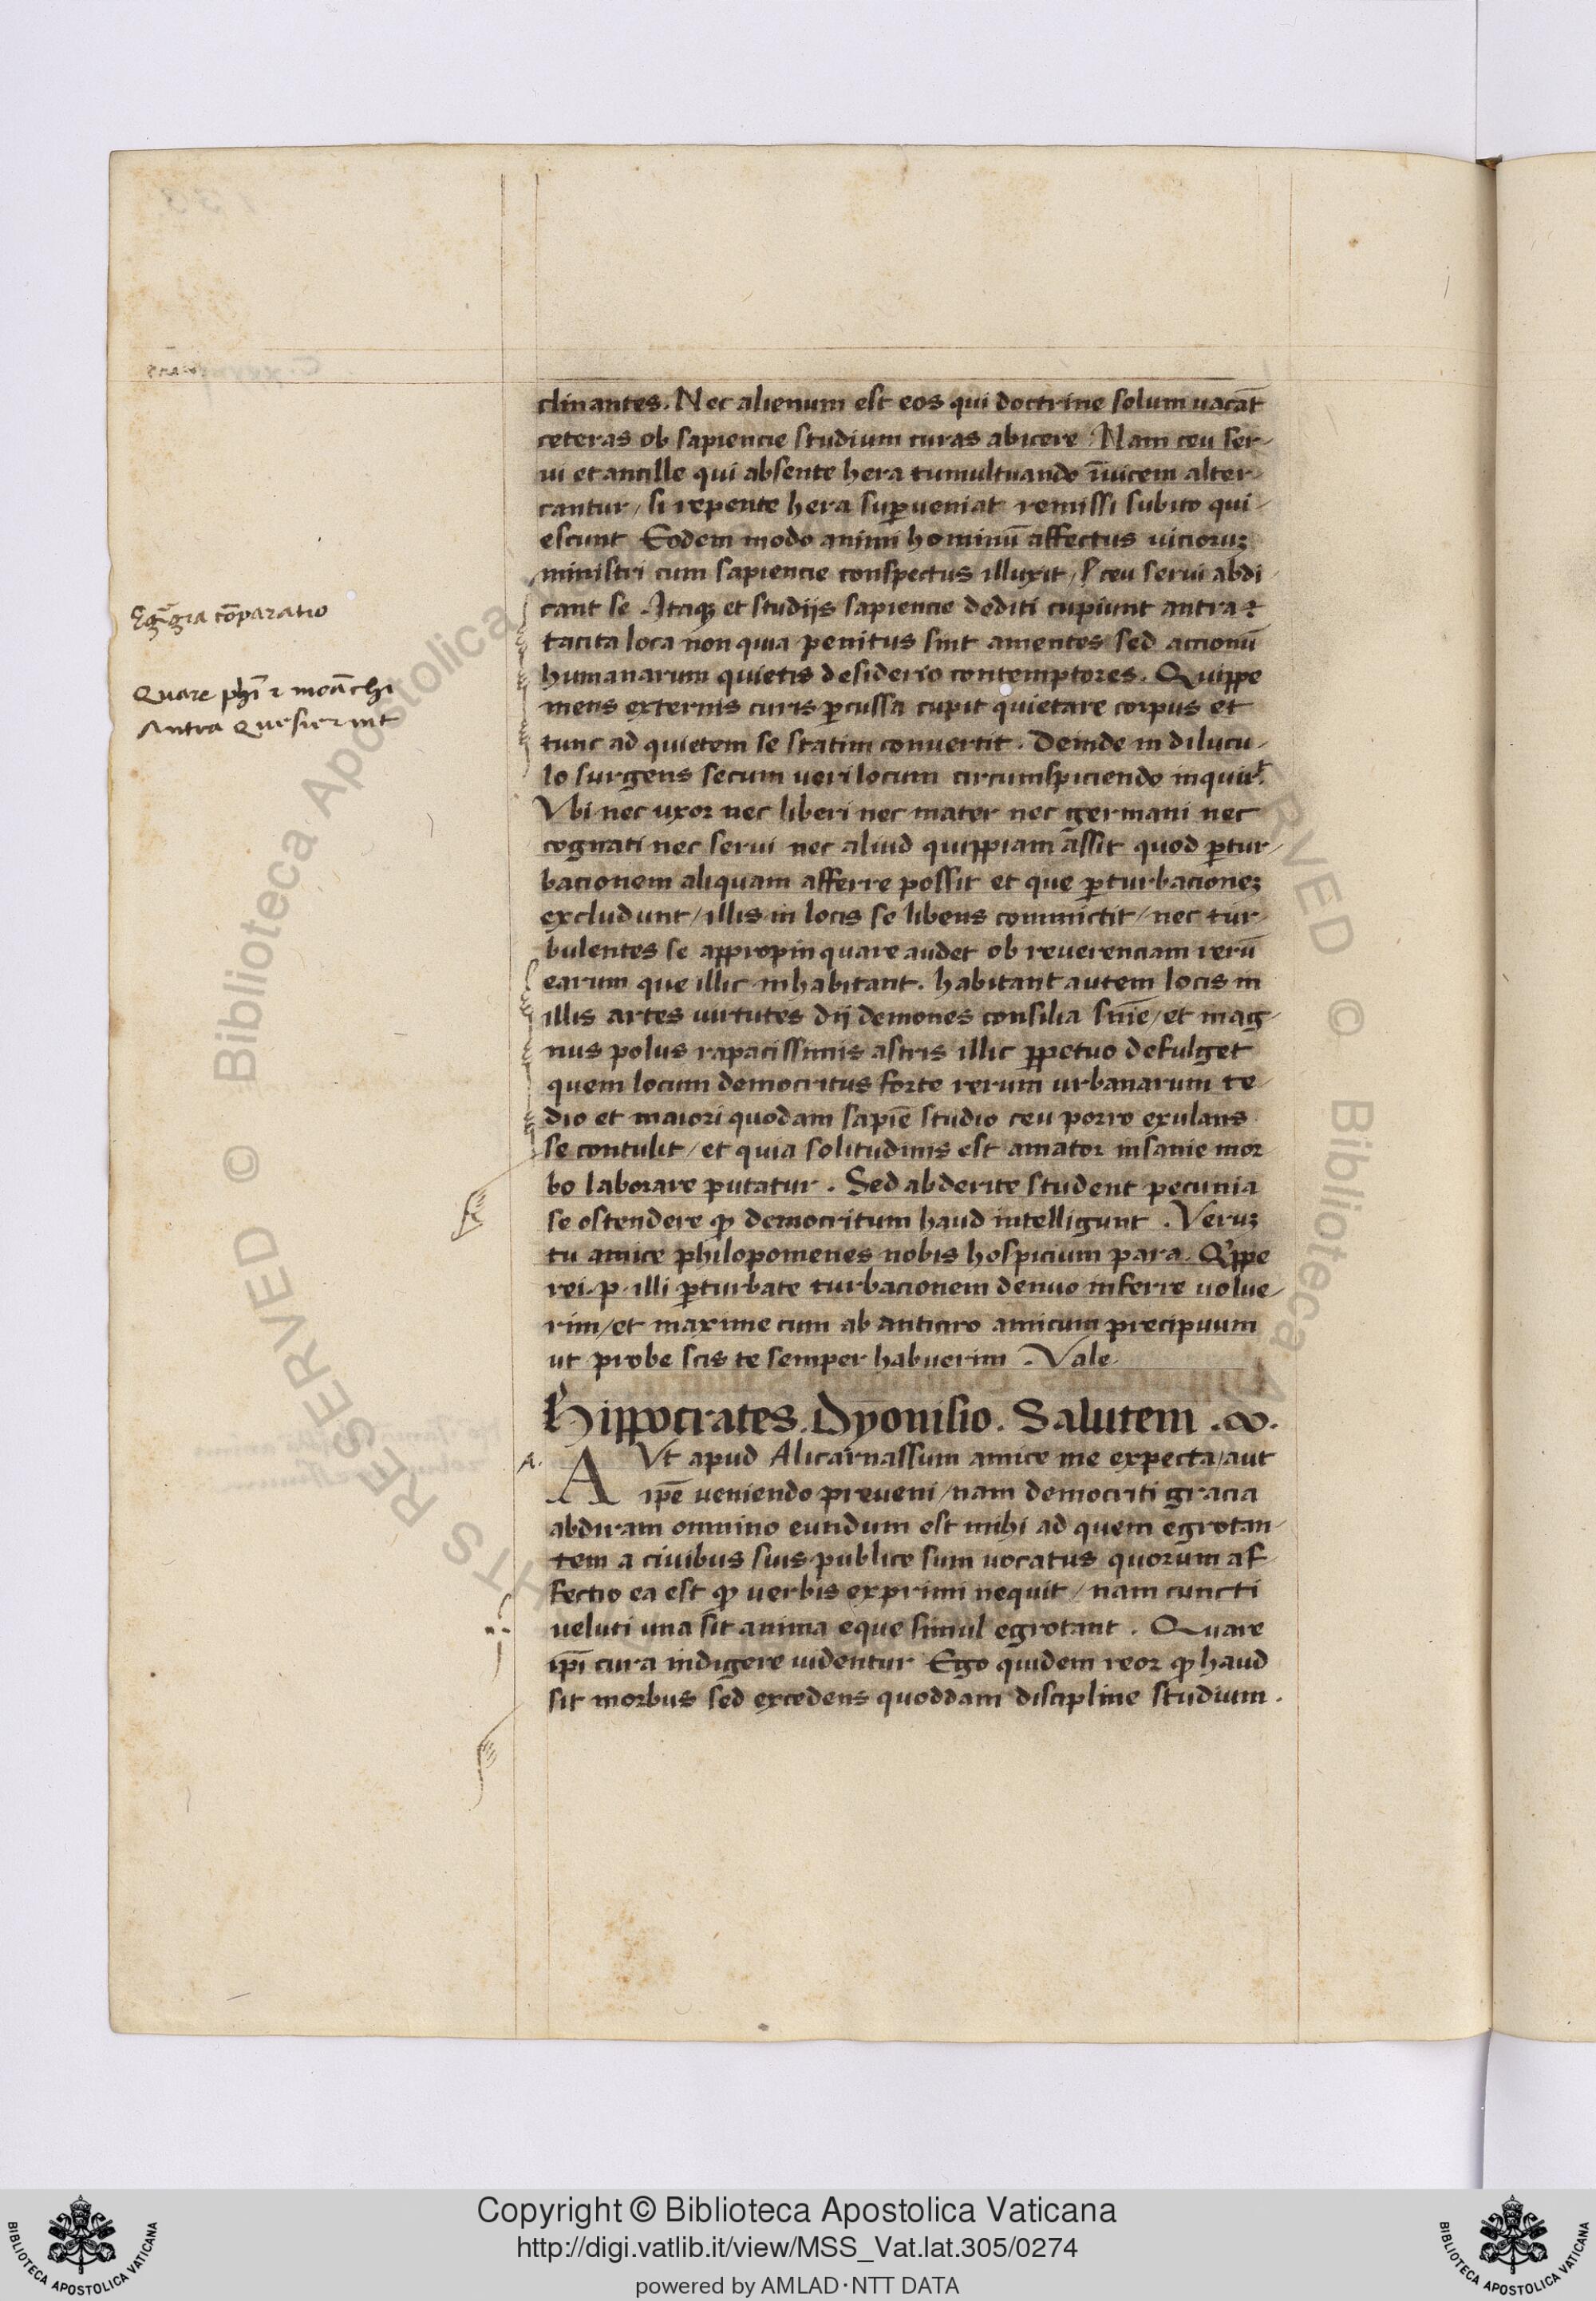 clinantes. Nec alienum est eos qui doctrine solum vacāt
ceteras ob sapiencie studium curas abicere. Nam ceu ser-
ui et ancille qui absente hera tumultuando īuicem alter-
cantur / si repente hera suꝑueniat remissi subito qui-
escunt Eodem modo animi hominū affectus uicioruꝫ
ministri cum sapiencie conspectus illuxit / ceu serui abdi-
cant se. Itaqꝫ et studijs sapiencie dediti cupiunt antra ⁊
tacita loca non quia penitus sint amentes sed accionū
humanarum quietis desiderio contemptores. Quippe
mens externis curis ꝑcussa cupit quietare corpus et
tunc ad quietem se statim conuertit. Deinde in dilucu-
lo surgens secum ueri locum circumspiciendo inquir̄.
Vbi nec uxor nec liberi nec mater nec germani nec
cognati nec serui nec aliud quippiam assit quod ꝑtur-
bacionem aliquam afferre possit et que ꝑturbacioneꝫ
excludunt / illis in locis se libens commictit / nec tur-
bulentes se appropinquare audet ob reuerenciam rerū
earum que illic inhabitant. habitant autem locis in
illis artes uirtutes dij demones consilia snīe / et mag-
nus polus rapacissimis astris illic ꝑpetuo defulget
quem locum democritus forte rerum urbanarum te-
dio et maiori quodam sapiē studio ceu porro exulans
se contulit / et quia solitudinis est amator insanie mor
bo laborare putatur. Sed abderite student pecunia
se ostendere ꝙ democritum haud intelligunt. Veruꝫ
tu amice philopomenes nobis hospicium para. Qͥppe
rei. p. illi ꝑturbate turbacionem denuo inferre uolue-
rim / et maxime cum ab anticuo amicum precipuum
ut probe scis te semper habuerim. Vale.
Hippocrates. Dyonisio. Salutem.
A.
AVt apud Alicarnassum amice me expecta / aut
ipē ueniendo preueni / nam democriti gracia
abdiram omnino eundum est mihi ad quem egrotan-
tem a ciuibus suis publice sum uocatus quorum af-
fectio ea est ꝙ uerbis exprimi nequit / nam cuncti
ueluti una sit anima eque simul egrotant. Quare
ipī cura indigere uidentur Ego quidem reor ꝙ haud
sit morbus sed excedens quoddam discipline studium.
cōparatio
Quare phī ⁊ moāchi
Antra quesierint
Copyright © Biblioteca Apostolica Vaticana
http://digi.vatlib.it/view/MSS_Vat.lat.305/0274
powered by AMLAD·NTT DATA
BIBLIOTECA APOSTOLICA VATICANA
BIBLIOTECA APOSTOLICA VATICANA